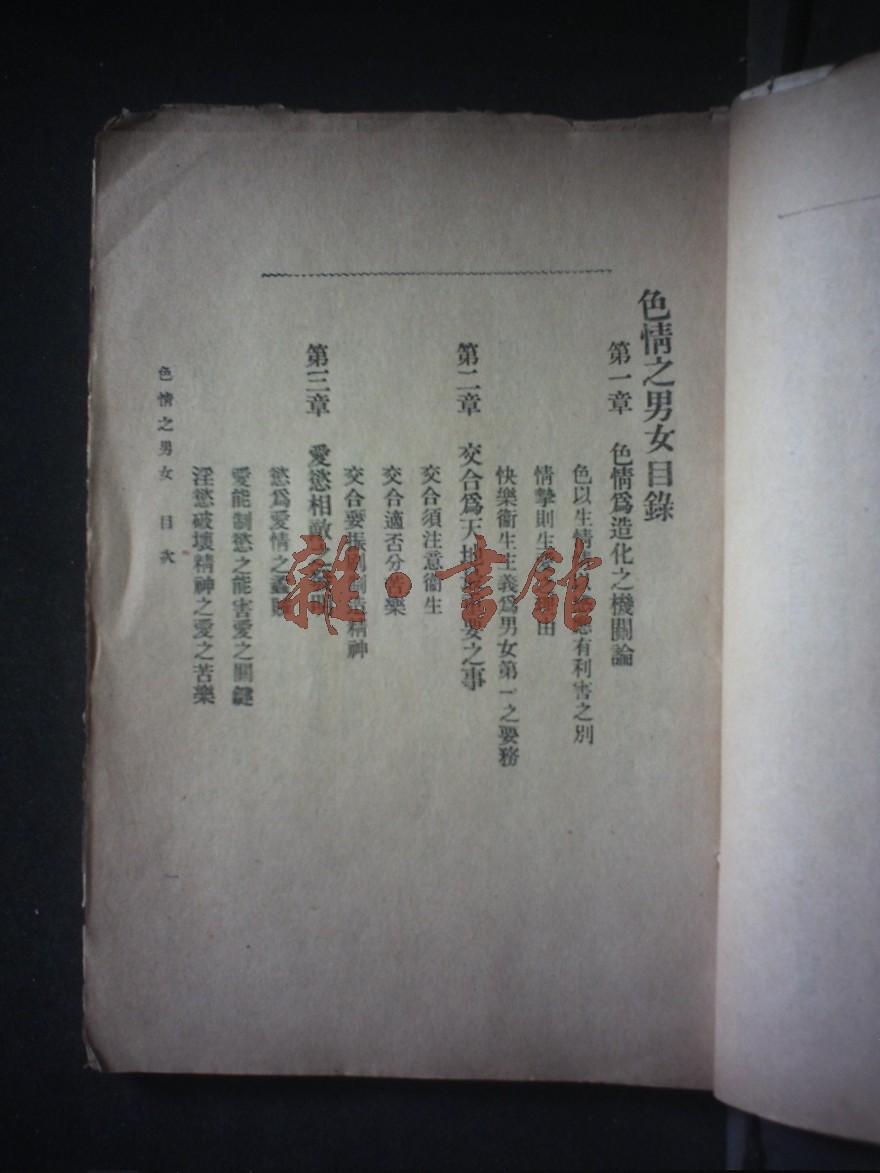 色情之男女目錄
第一章 色情爲造化之機關論
色以生情 有利害之別
情摯則生 由
快樂衞生主義爲男女第一之要務
第二章 交合爲天地 要之事
交合須注意衞生
交合適否分苦樂
交合要振 精神
第三章 愛慾相敵
慾爲愛情之蟊賊
愛能制慾之能害愛之關鍵
淫慾破壞精神之愛之苦樂
色情之男女 目次
一
雜·書館